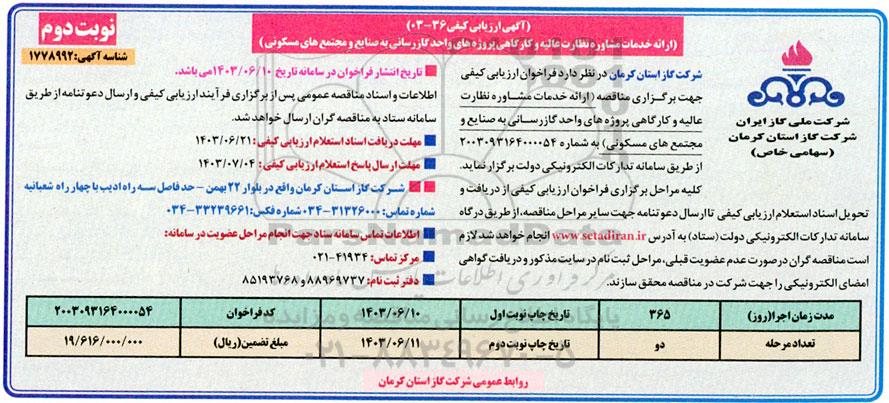 (آگهی ارزیابی کیفی ۳۶-۰۳)
(ارائه خدمات مشاوره نظارت عالیه و کارگاهی پروژه های واحد گازرسانی به صنایع و مجتمع های مسکونی)
نوبت دوم
شناسه آگهی: ۱۷۷۸۹۹۲
شرکت ملی گاز ایران
شرکت گاز استان کرمان
(سهامی خاص)
شرکت گاز استان کرمان در نظر دارد فراخوان ارزیابی کیفی
جهت برگزاری مناقصه (ارائه خدمات مشاوره نظارت
عالیه و کارگاهی پروژه های واحد گازرسانی به صنایع و
مجتمع های مسکونی) به شماره ۲۰۰۳۰۹۳۱۶۴۰۰۰۰۵۴
از طریق سامانه تدارکات الکترونیکی دولت برگزار نماید.
کلیه مراحل برگزاری فراخوان ارزیابی کیفی از دریافت و
تحویل اسناد استعلام ارزیابی کیفی تا ارسال دعوتنامه جهت سایر مراحل مناقصه، از طریق درگاه
سامانه تدارکات الکترونیکی دولت (ستاد) به آدرس www.setadiran.ir انجام خواهد شد. لازم
است مناقصه گران در صورت عدم عضویت قبلی، مراحل ثبت نام در سایت مذکور و دریافت گواهی
امضای الکترونیکی را جهت شرکت در مناقصه محقق سازند.
تاریخ انتشار فراخوان در سامانه تاریخ ۱۴۰۳/۰۶/۱۰ می باشد.
اطلاعات و اسناد مناقصه عمومی پس از برگزاری فرآیند ارزیابی کیفی و ارسال دعوتنامه از طریق
سامانه ستاد به مناقصه گران ارسال خواهد شد.
مهلت دریافت اسناد استعلام ارزیابی کیفی: ۱۴۰۳/۰۶/۲۱
مهلت ارسال پاسخ استعلام ارزیابی کیفی: ۱۴۰۳/۰۷/۰۴
شرکت گاز استان کرمان واقع در بلوار ۲۲ بهمن - حد فاصل سه راه ادیب با چهار راه شعبانیه
شماره تماس: ۳۱۳۲۶۰۰۰-۰۳۴ شماره فکس: ۳۳۲۳۹۶۶۱-۰۳۴
اطلاعات تماس سامانه ستاد جهت انجام مراحل عضویت در سامانه:
مرکز تماس: ۴۱۹۳۴-۰۲۱
دفتر ثبت نام: ۸۸۹۶۹۷۳۷ و ۸۵۱۹۳۷۶۸
مدت زمان اجرا (روز) ۳۶۵ تاریخ چاپ نوبت اول ۱۴۰۳/۰۶/۱۰ کد فراخوان ۲۰۰۳۰۹۳۱۶۴۰۰۰۰۵۴
تعداد مرحله دو تاریخ چاپ نوبت دوم ۱۴۰۳/۰۶/۱۱ مبلغ تضمین (ریال) ۱۹/۶۱۶/۰۰۰/۰۰۰
روابط عمومی شرکت گاز استان کرمان
ParsNamadData
۰۲۱-۸۸۳۴۹۶۷۰-۵